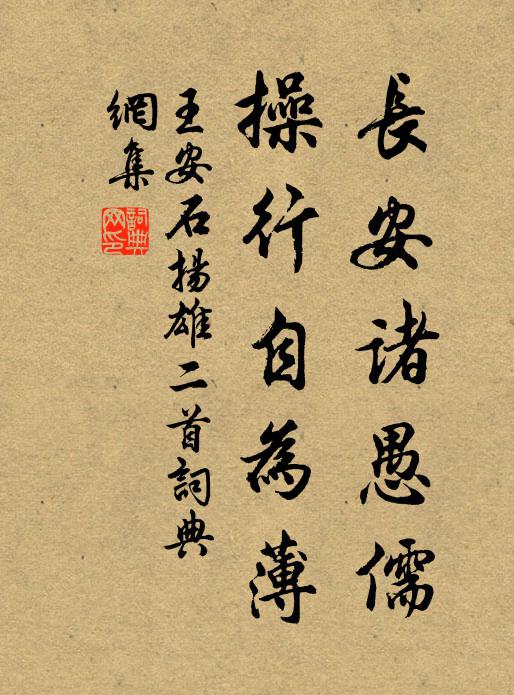 長安諸愚儒
操行自為薄
王安石揚雄二首詞典
網集
詞典網印